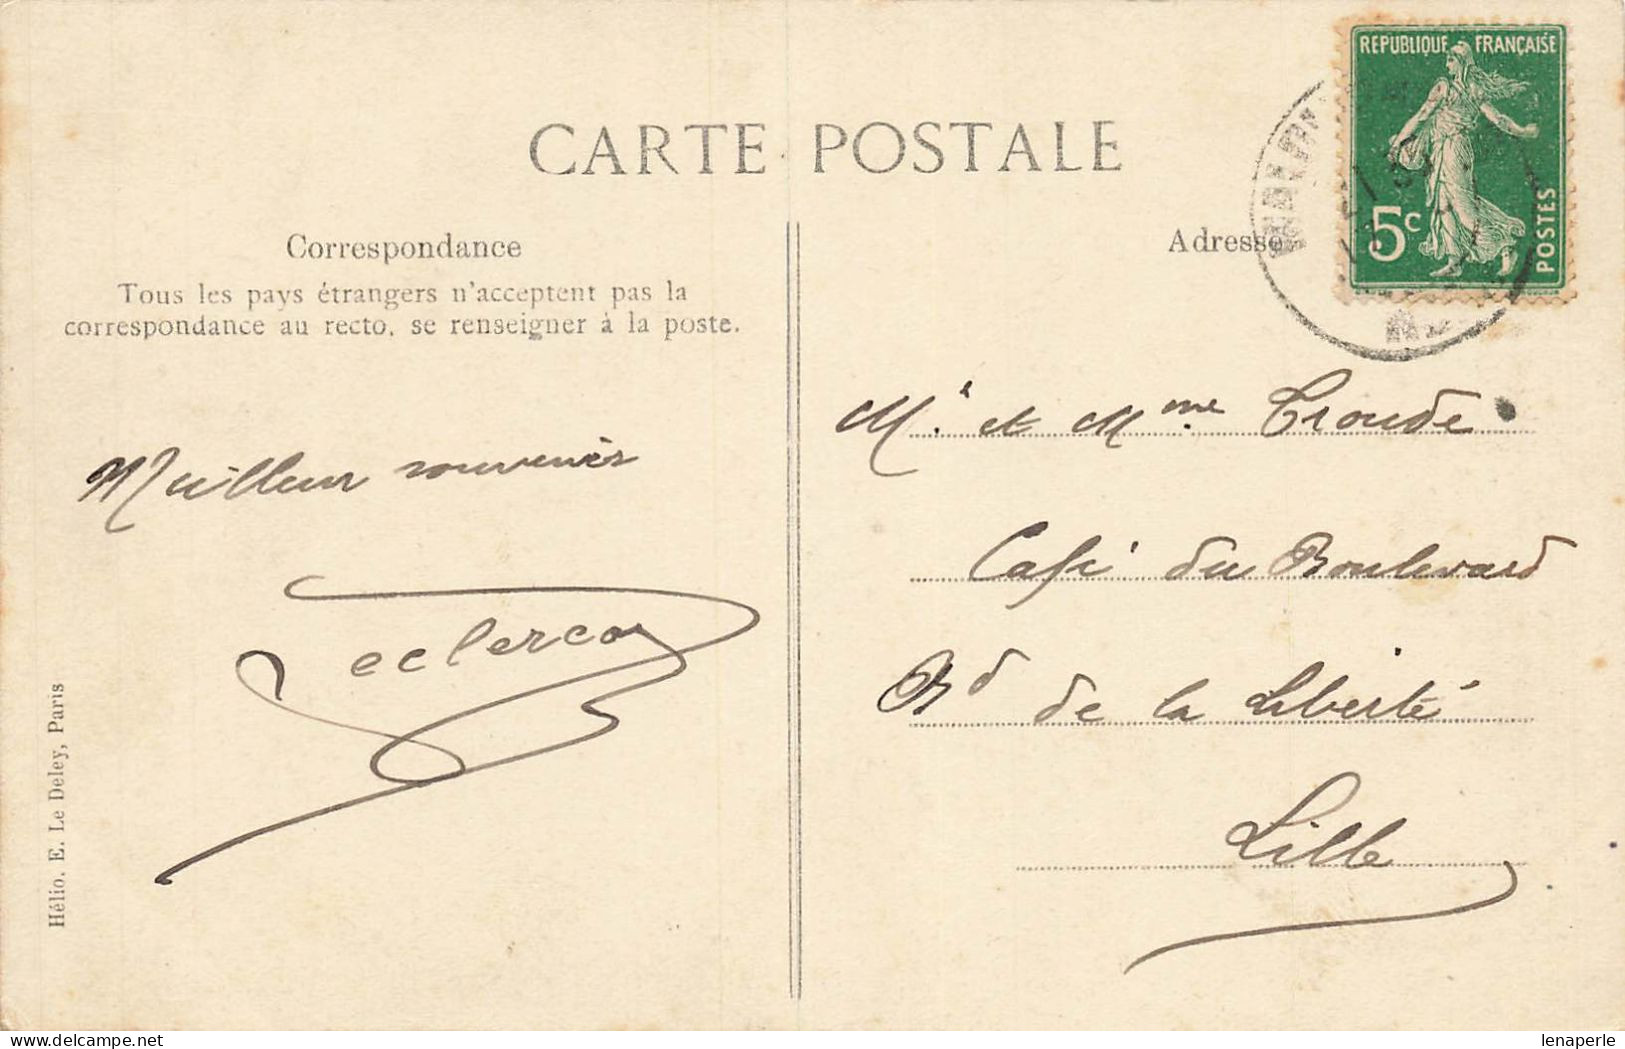 CARTE POSTALE
REPUBLIQUE FRANÇAISE
5c
POSTES
Correspondance
Tous les pays étrangers n'acceptent pas la
correspondance au recto, se renseigner à la poste.
Adresse
Meilleur souvenirs
Leclercq
Mr. et Mme. Troude
Café du Boulevard
Bd de la Liberté
Lille
Hélio. E. Le Deley, Paris
lenaperle